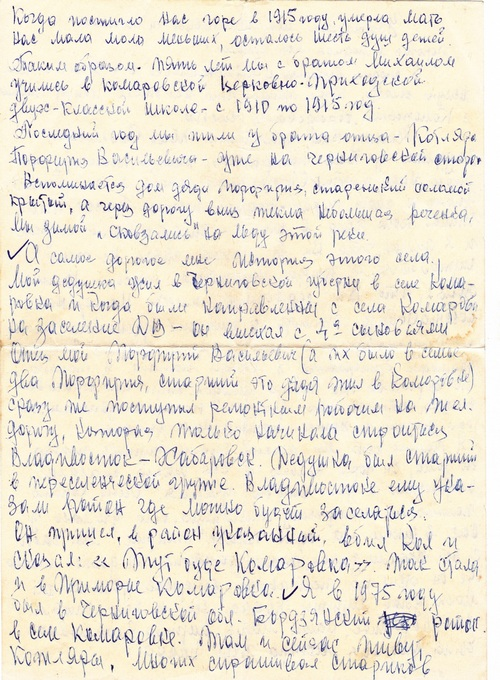 Когда постигло нас горе в 1915 году, умерла мать
нас мала мола меньших, осталось шесть душ детей.
Таким образом пять лет мы с братом Михаилом
учились в комаровской Церковно-Приходской
двухклассной школе с 1910 по 1915 год
Последний год мы жили у брата отца - Котляра
Порфирия Васильевича - уже на черниговской сторо
Вспоминается дом дяди Порфирия, старенький соломой
крытый, а через дорогу вниз текла небольшая реченка,
мы зимой "сковзались" на льду этой реки.
А самое дорогое мне история этого села.
Мой дедушка жил в Черниговской губернии в селе Кома-
ровка и когда были направленны с села Комаровка
на заселение ДВ - он выехал с 4мя сыновьями
Отец мой Порфирий Васильевич (а их было в семье
два Порфирия, старший это дядя жил в Комаровке)
сразу же поступил ремонтным рабочим на жел.
дорогу, которая только начинала строиться
Владивосток - Хабаровск. Дедушка был старший
в переселенческой группе. Владивостоке ему ука-
зали район где можно будет заселяться.
Он пришел, в район указанный, вбил кол и
сказал: "Тут буде Комаровка". Так стала
и в Приморье Комаровка. Я в 1975 году
был в Черниговской обл. Борзянский район
в селе Комаровке. Там и сейчас живут
Котляры, многих спрашивал стариков